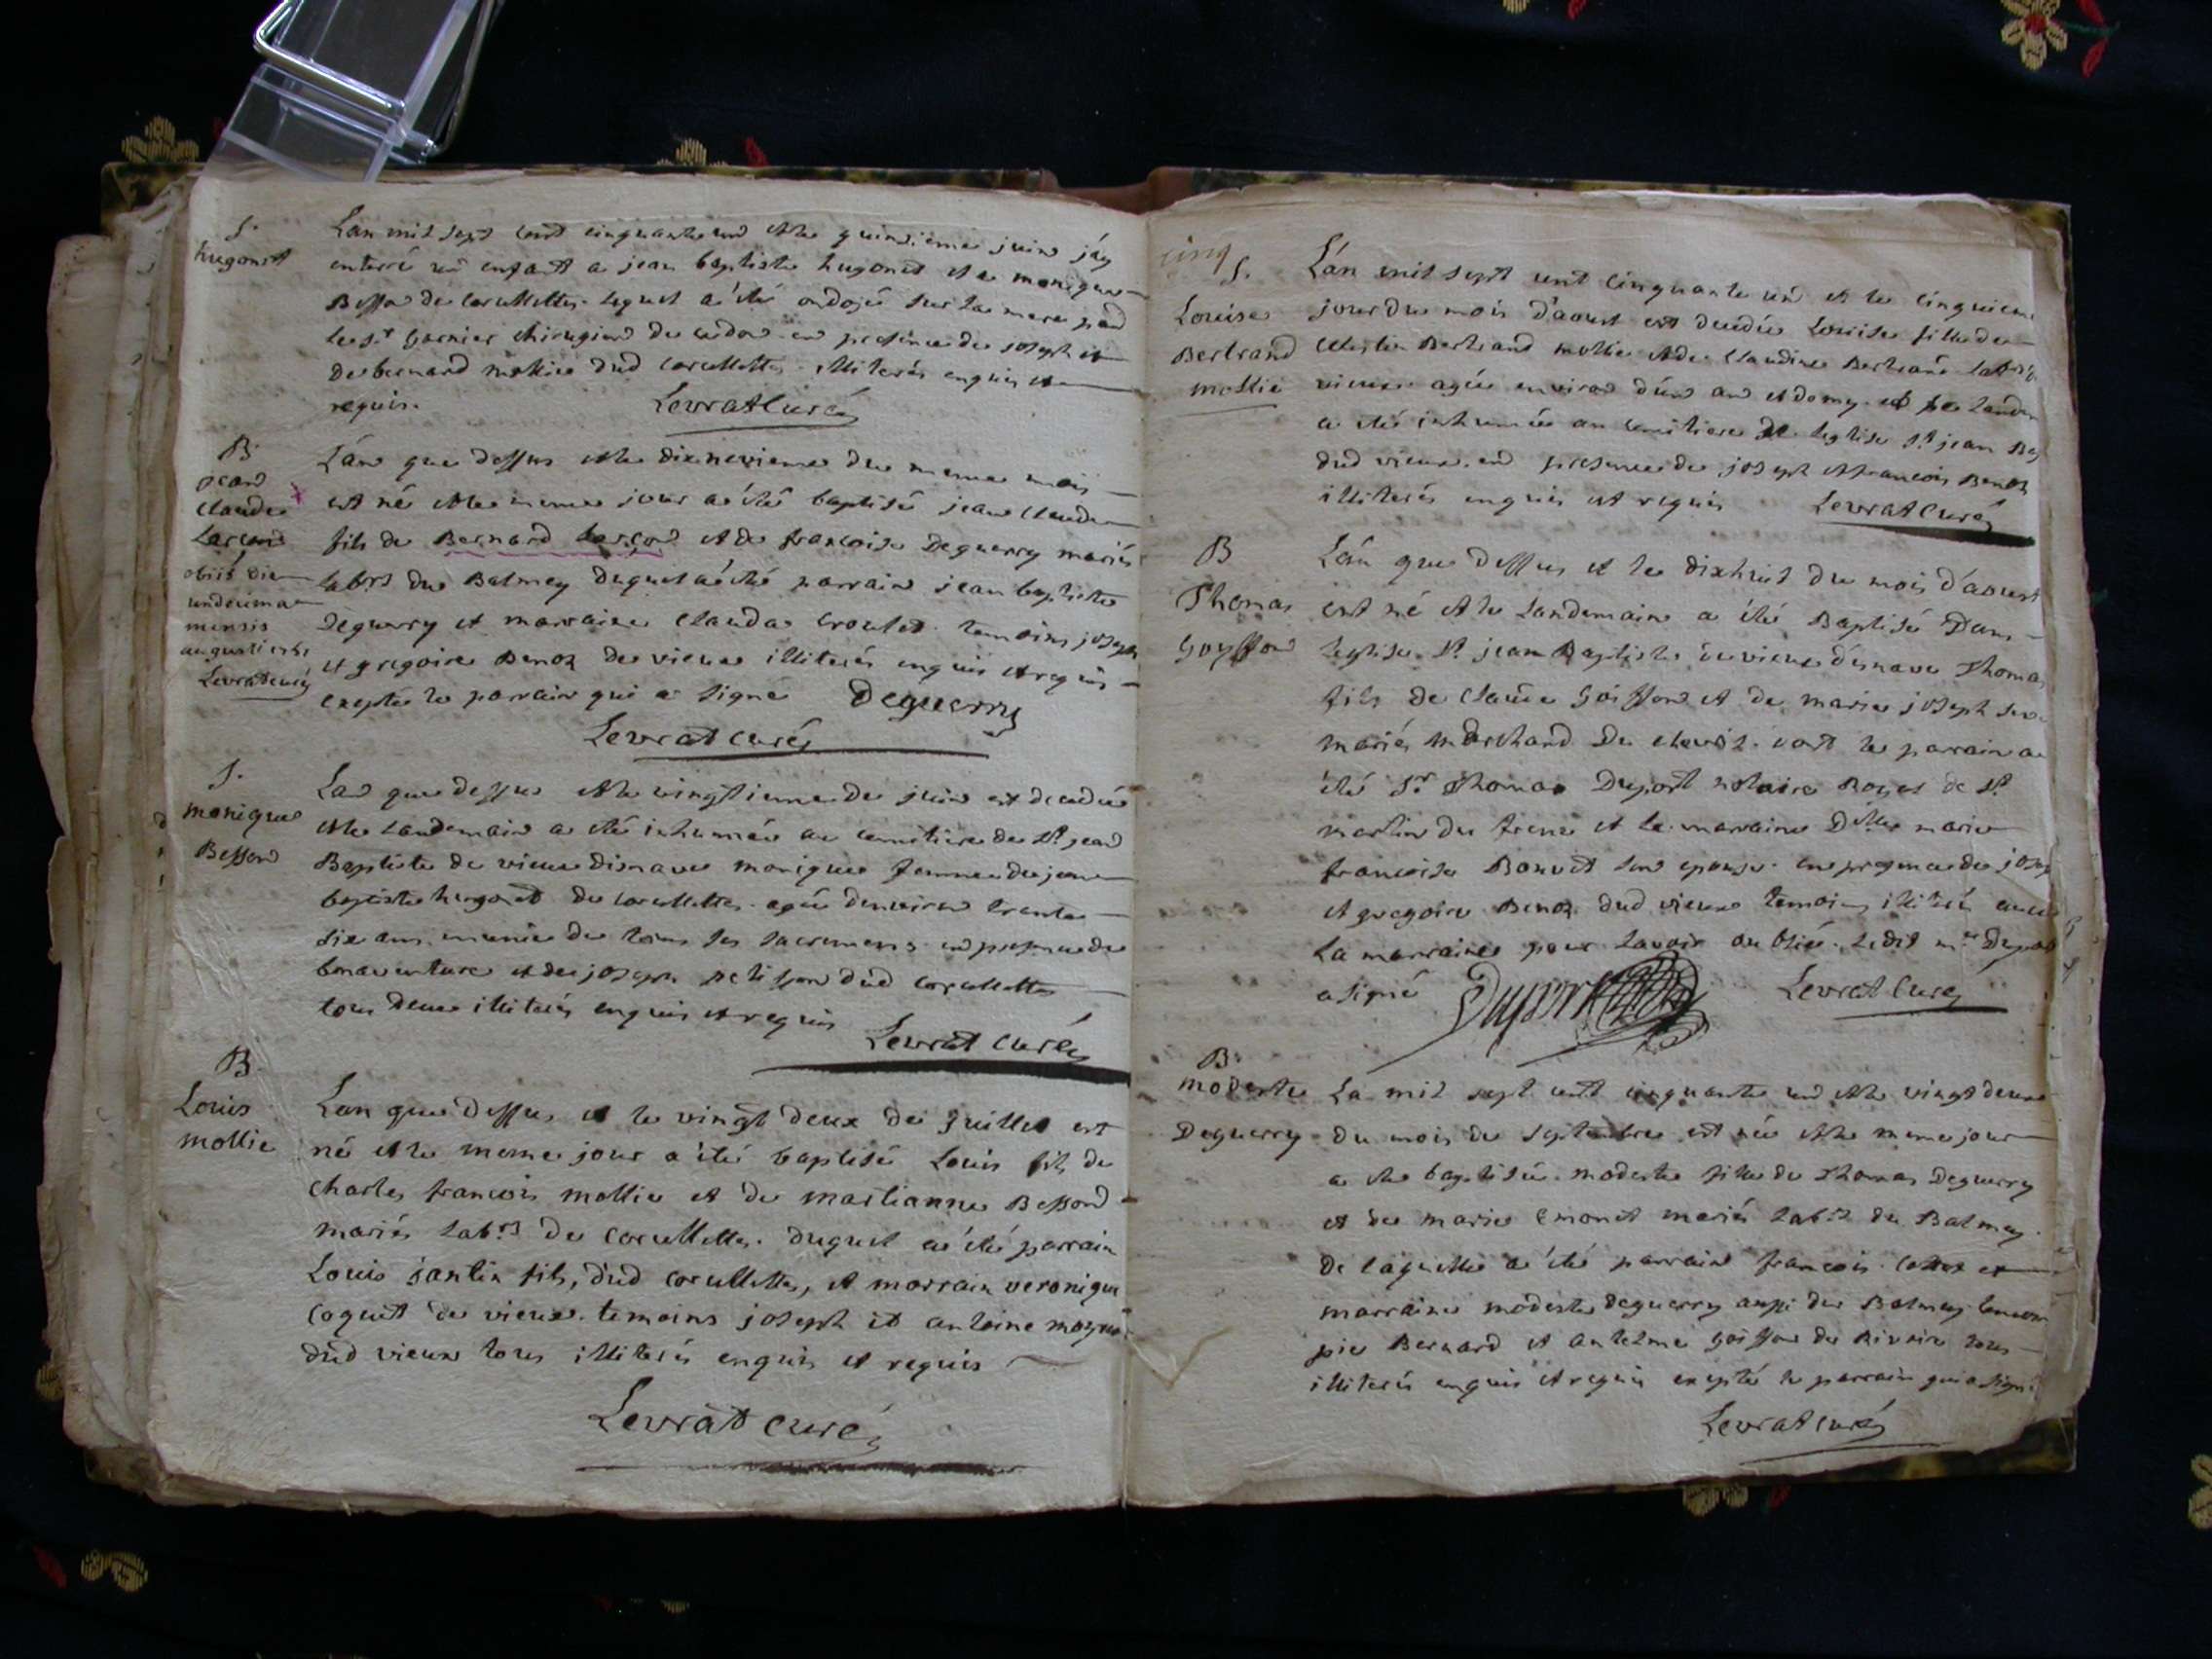 S.
hugonet
Lan mil sept cent cinquante un et le quinsieme juin j'ay
enterré un enfant a jean baptiste hugonet et a monique
Besson de Corcellettes lequel a été ondoyé sur la mere par
le sr garnier chirugien de cerdon en presence de joseph et
de bernard mollie dud corcellettes illiterés enquis et
requis. Levrat Curé
B.
jean
claude
Larçon
obiit die
undecima
mensis
augusti
Levrat curé
L'an que dessus et le dixnevieme du meme mois
est né et le meme jour a été baptisé jean claude
fils de Bernard Larçon et de francoise Deguerry mariés
labrs du Balmey duquel a été parrain jean baptiste
Deguerry et marraine Clauda Croulet temoins joseph
et gregoire Benoz de vieux illiterés enquis et requis
excepté le parrain qui a signé Deguerry
Levrat curé
S.
monique
Besson
Lan que dessus et le vingtieme de juin est decedée
et le landemain a été inhumée au cemitiere de st jean
Baptiste de vieux disnave monique femme de jean
baptiste hugonet de corcellettes agée denviron trente
six ans munie de tous ses sacremens en presence de
bonaventure et de joseph petisson dud corcellettes
tous deux illiterés enquis et requis
Levrat curé
B.
Louis
mollie
Lan que dessus et le vingt deux de juillet est
né et le meme jour a été baptisé Louis fils de
Charles francois mollie et de martianne Besson
mariés labrs de Corcellettes. duquel a été parrain
Louis jantin fils, dud corcellettes, et marrain veronique
Coquet de vieux. temoins joseph et antoine
dud vieux tous illiterés enquis et requis
Levrat curé
cinq
S.
Louise
Bertrand
mollie
L'an mil sept cent cinquante un et le cinquieme
jour du mois d'aoust est decedée Louise fille de
Bertrand mollie et de Claudine Bertrand
vieux agée environ d'un an et demy et le landem
a été inhumée au cemitiere de leglise st jean Bap
dud vieux en presence de joseph et francois Benoz
illiterés enquis et requis Levrat curé
B
Thomas
Goyffon
L'an que dessus et le dixhuit du mois d'aoust
est né et le landemain a été Baptisé Dans
leglise st jean Baptiste de vieux d'isnave Thomas
fils de Claude Goiffon et de marie joseph
mariés marchand De dont le parrain a
été Sr Thomas Duport notaire Royal de St
martin du frene et la marraine Dlle marie
francoise Bonvet son epouse. en presence de joseph
et gregoire Benoz dud vieux temoins illiterés
la marraine pour lavoir oublié. Ledit me Duport
a signé Duport Levrat Curé
B.
modeste
Deguerry
La mil sept cent cinquante un et le vingt deux
du mois de septembre est née et le meme jour
a ete baptisée modeste fille de Thomas Deguerry
et de marie Emonet mariés labrs du Balmey.
De laquelle a été parrain francois et
marraine modeste deguerry aussi du Balmey temoin
pie Bernard et antelme Goiffon du Rivoire tous
illiterés enquis et requis excepté le parrain qui a signé
Levrat curé